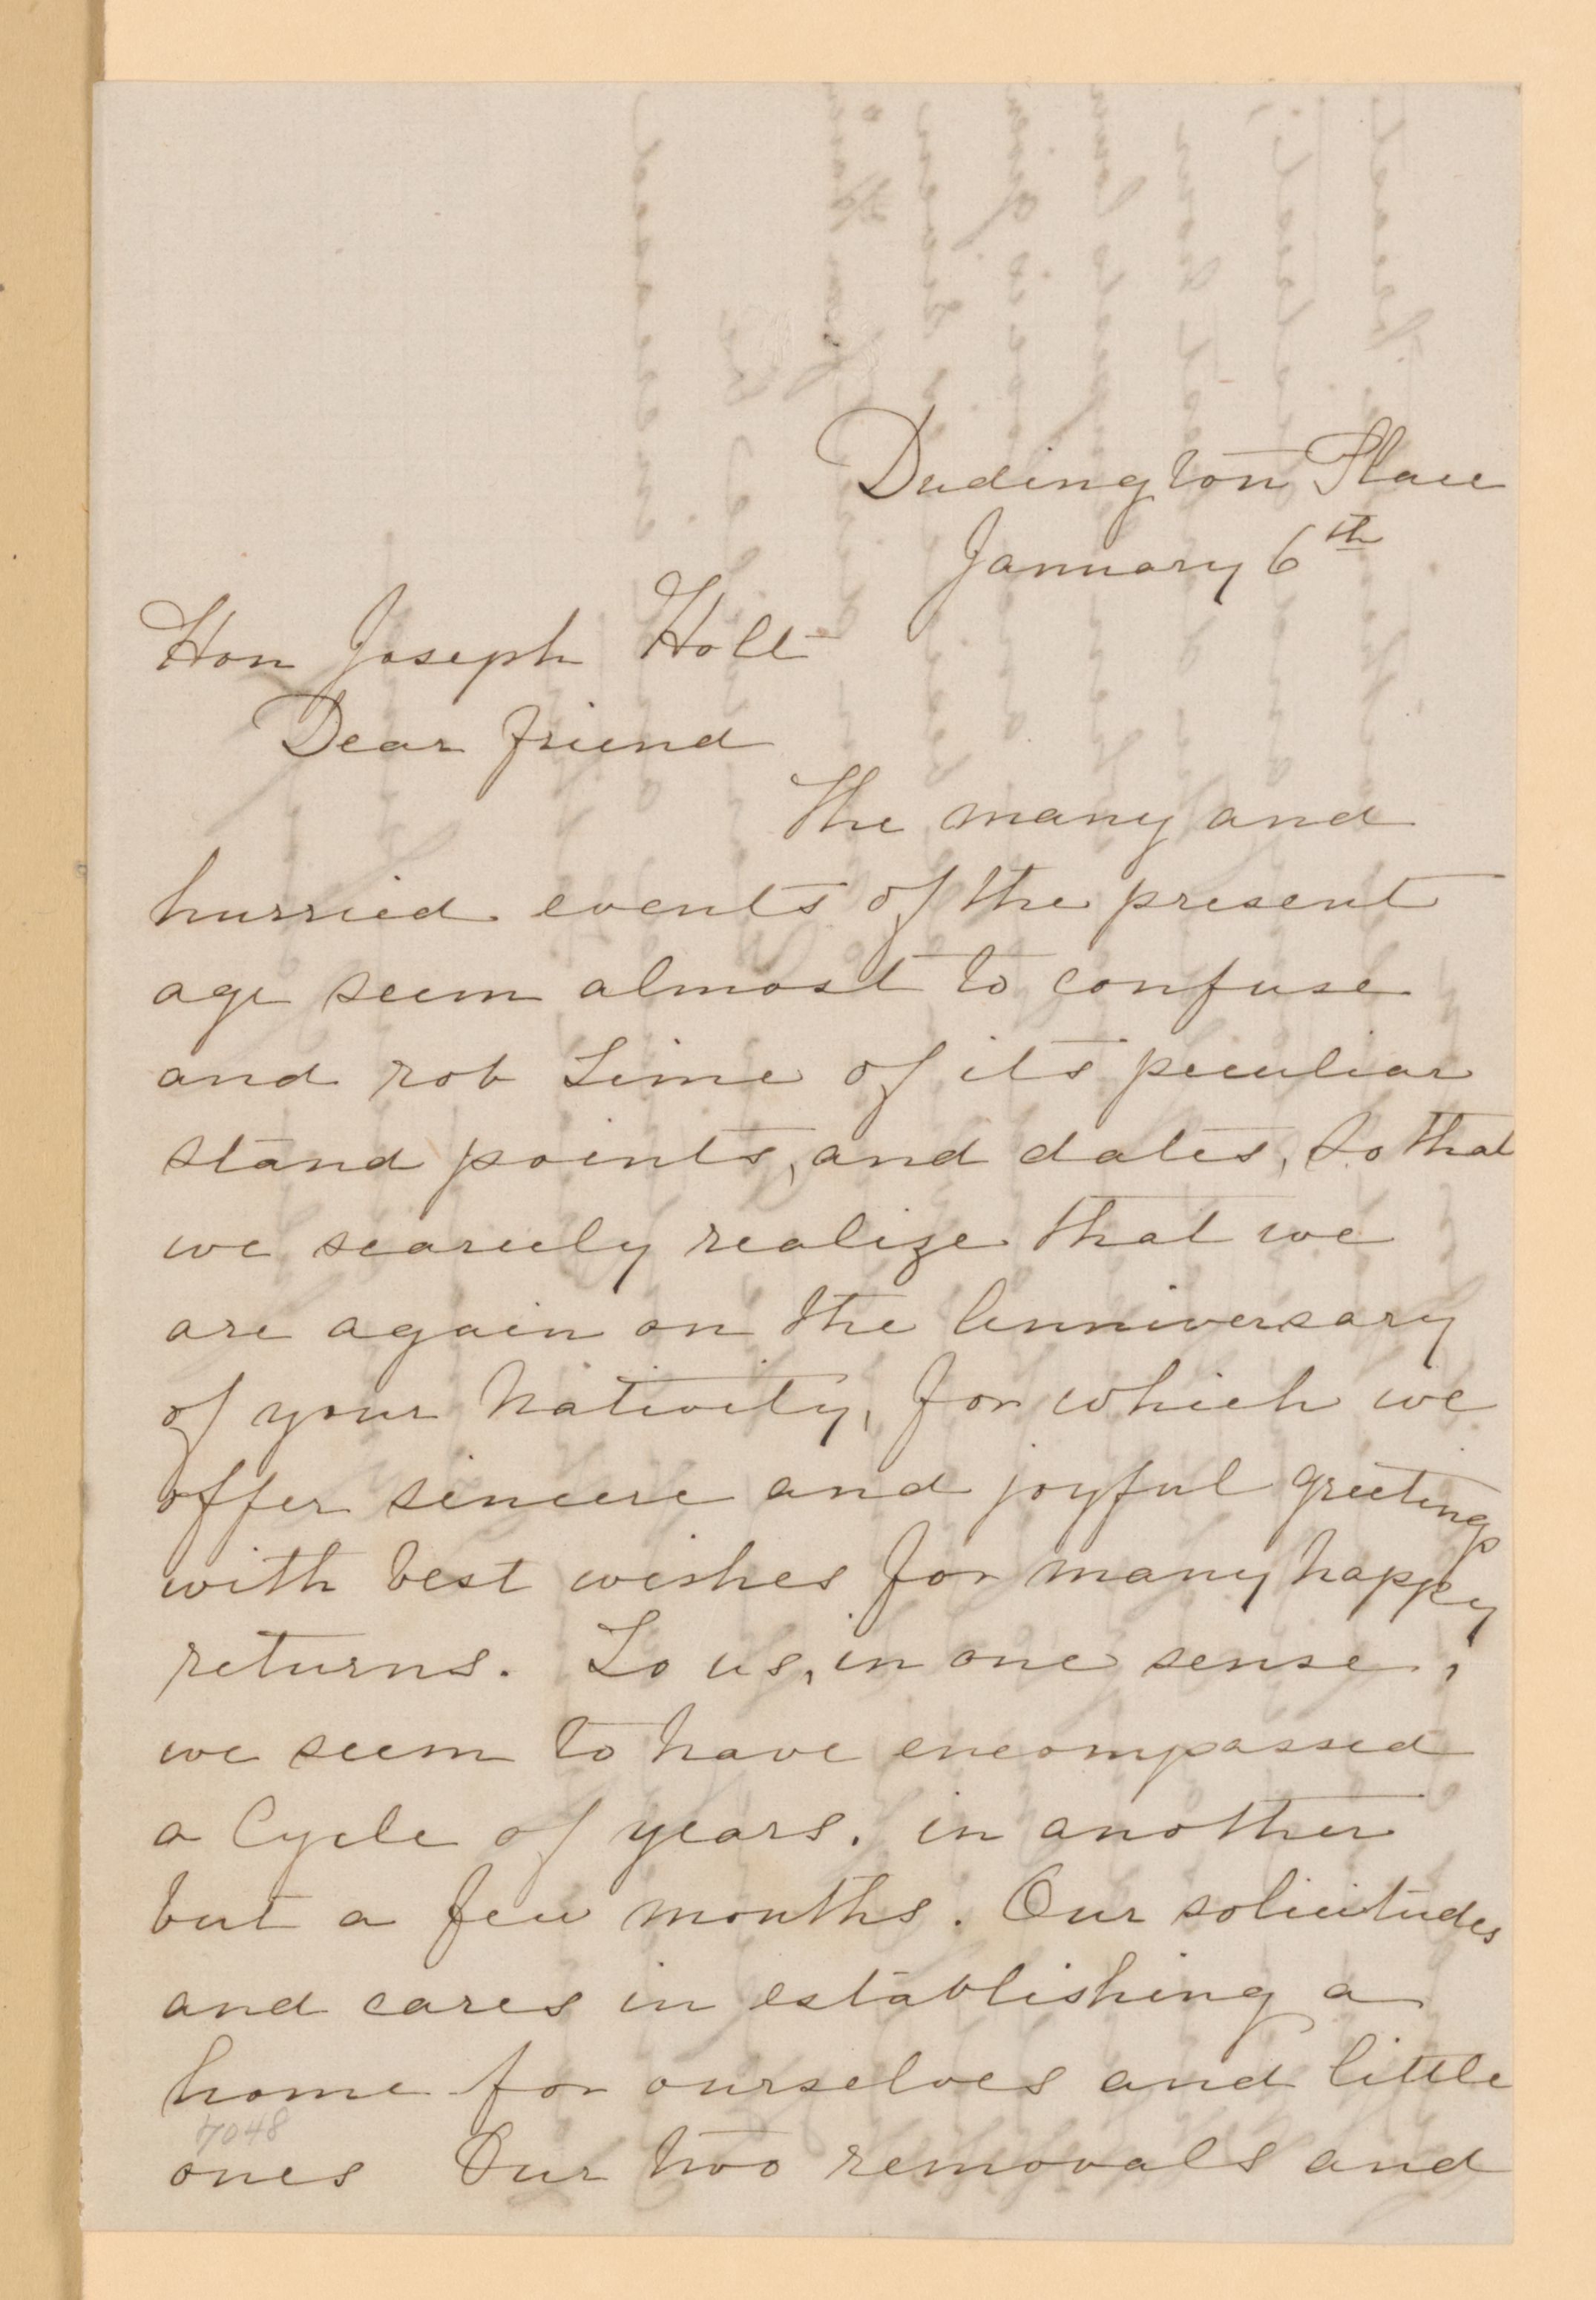 Dudington Place
January 6th
Hon Joseph Holt
Dear friend
The many and
hurried events of the present
age seem almost to confuse
and rob Time of its peculiar
stand points, and dates, so that
we scarcely realize that we
are again on the Anniversary
of your Nativity, for which we
offer sincere and joyful greetings
with best wishes for many happy
returns. To us, in one sense,
we seem to have encompassed
a Cycle of years. in another
but a few months. Our solicitudes
and cares in establishing a
home for ourselves and little
7048
ones Our two removals and